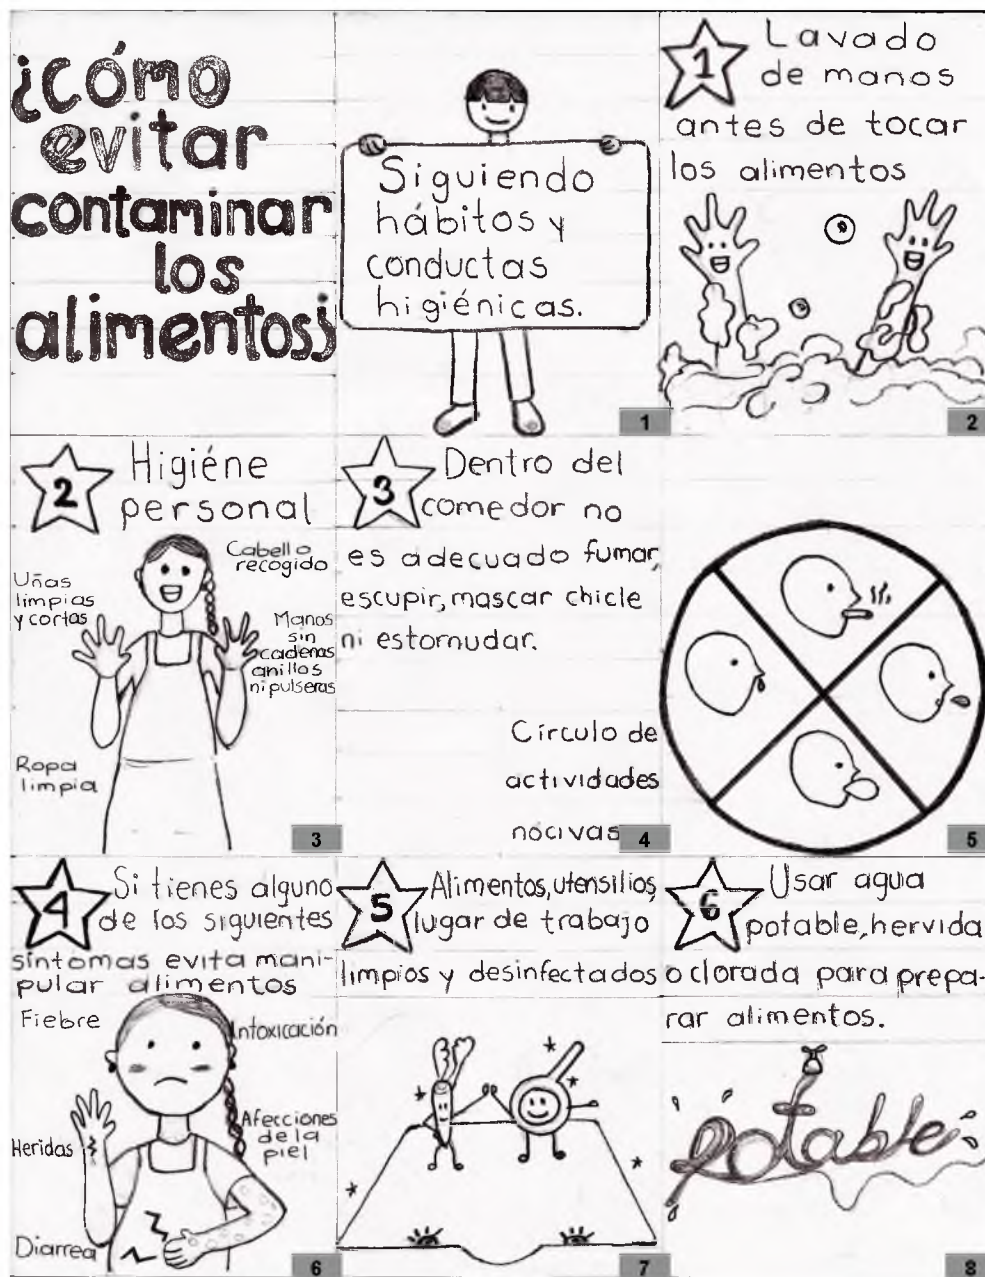 ¿cómo
evitar
contaminar
los
alimentos?
Siguiendo
hábitos y
conductas
higiénicas.
1
1
Lavado
de manos
antes de tocar
los alimentos
2
2
Higiéne
personal
Cabello
recogido
Uñas
limpias
y cortas
Manos
sin
cadenas
anillos
ni pulseras
Ropa
limpia
3
3
Dentro del
comedor no
es adecuado fumar,
escupir, mascar chicle
ni estornudar.
Círculo de
actividades
nocivas
4
5
4
Si tienes alguno
de los siguientes
síntomas evita mani-
pular alimentos
Fiebre
Intoxicación
Heridas
Afecciones
de la
piel
Diarrea
6
5
Alimentos, utensilios,
lugar de trabajo
limpios y desinfectados
7
6
Usar agua
potable, hervida
o clorada para prepa-
rar alimentos.
potable
8